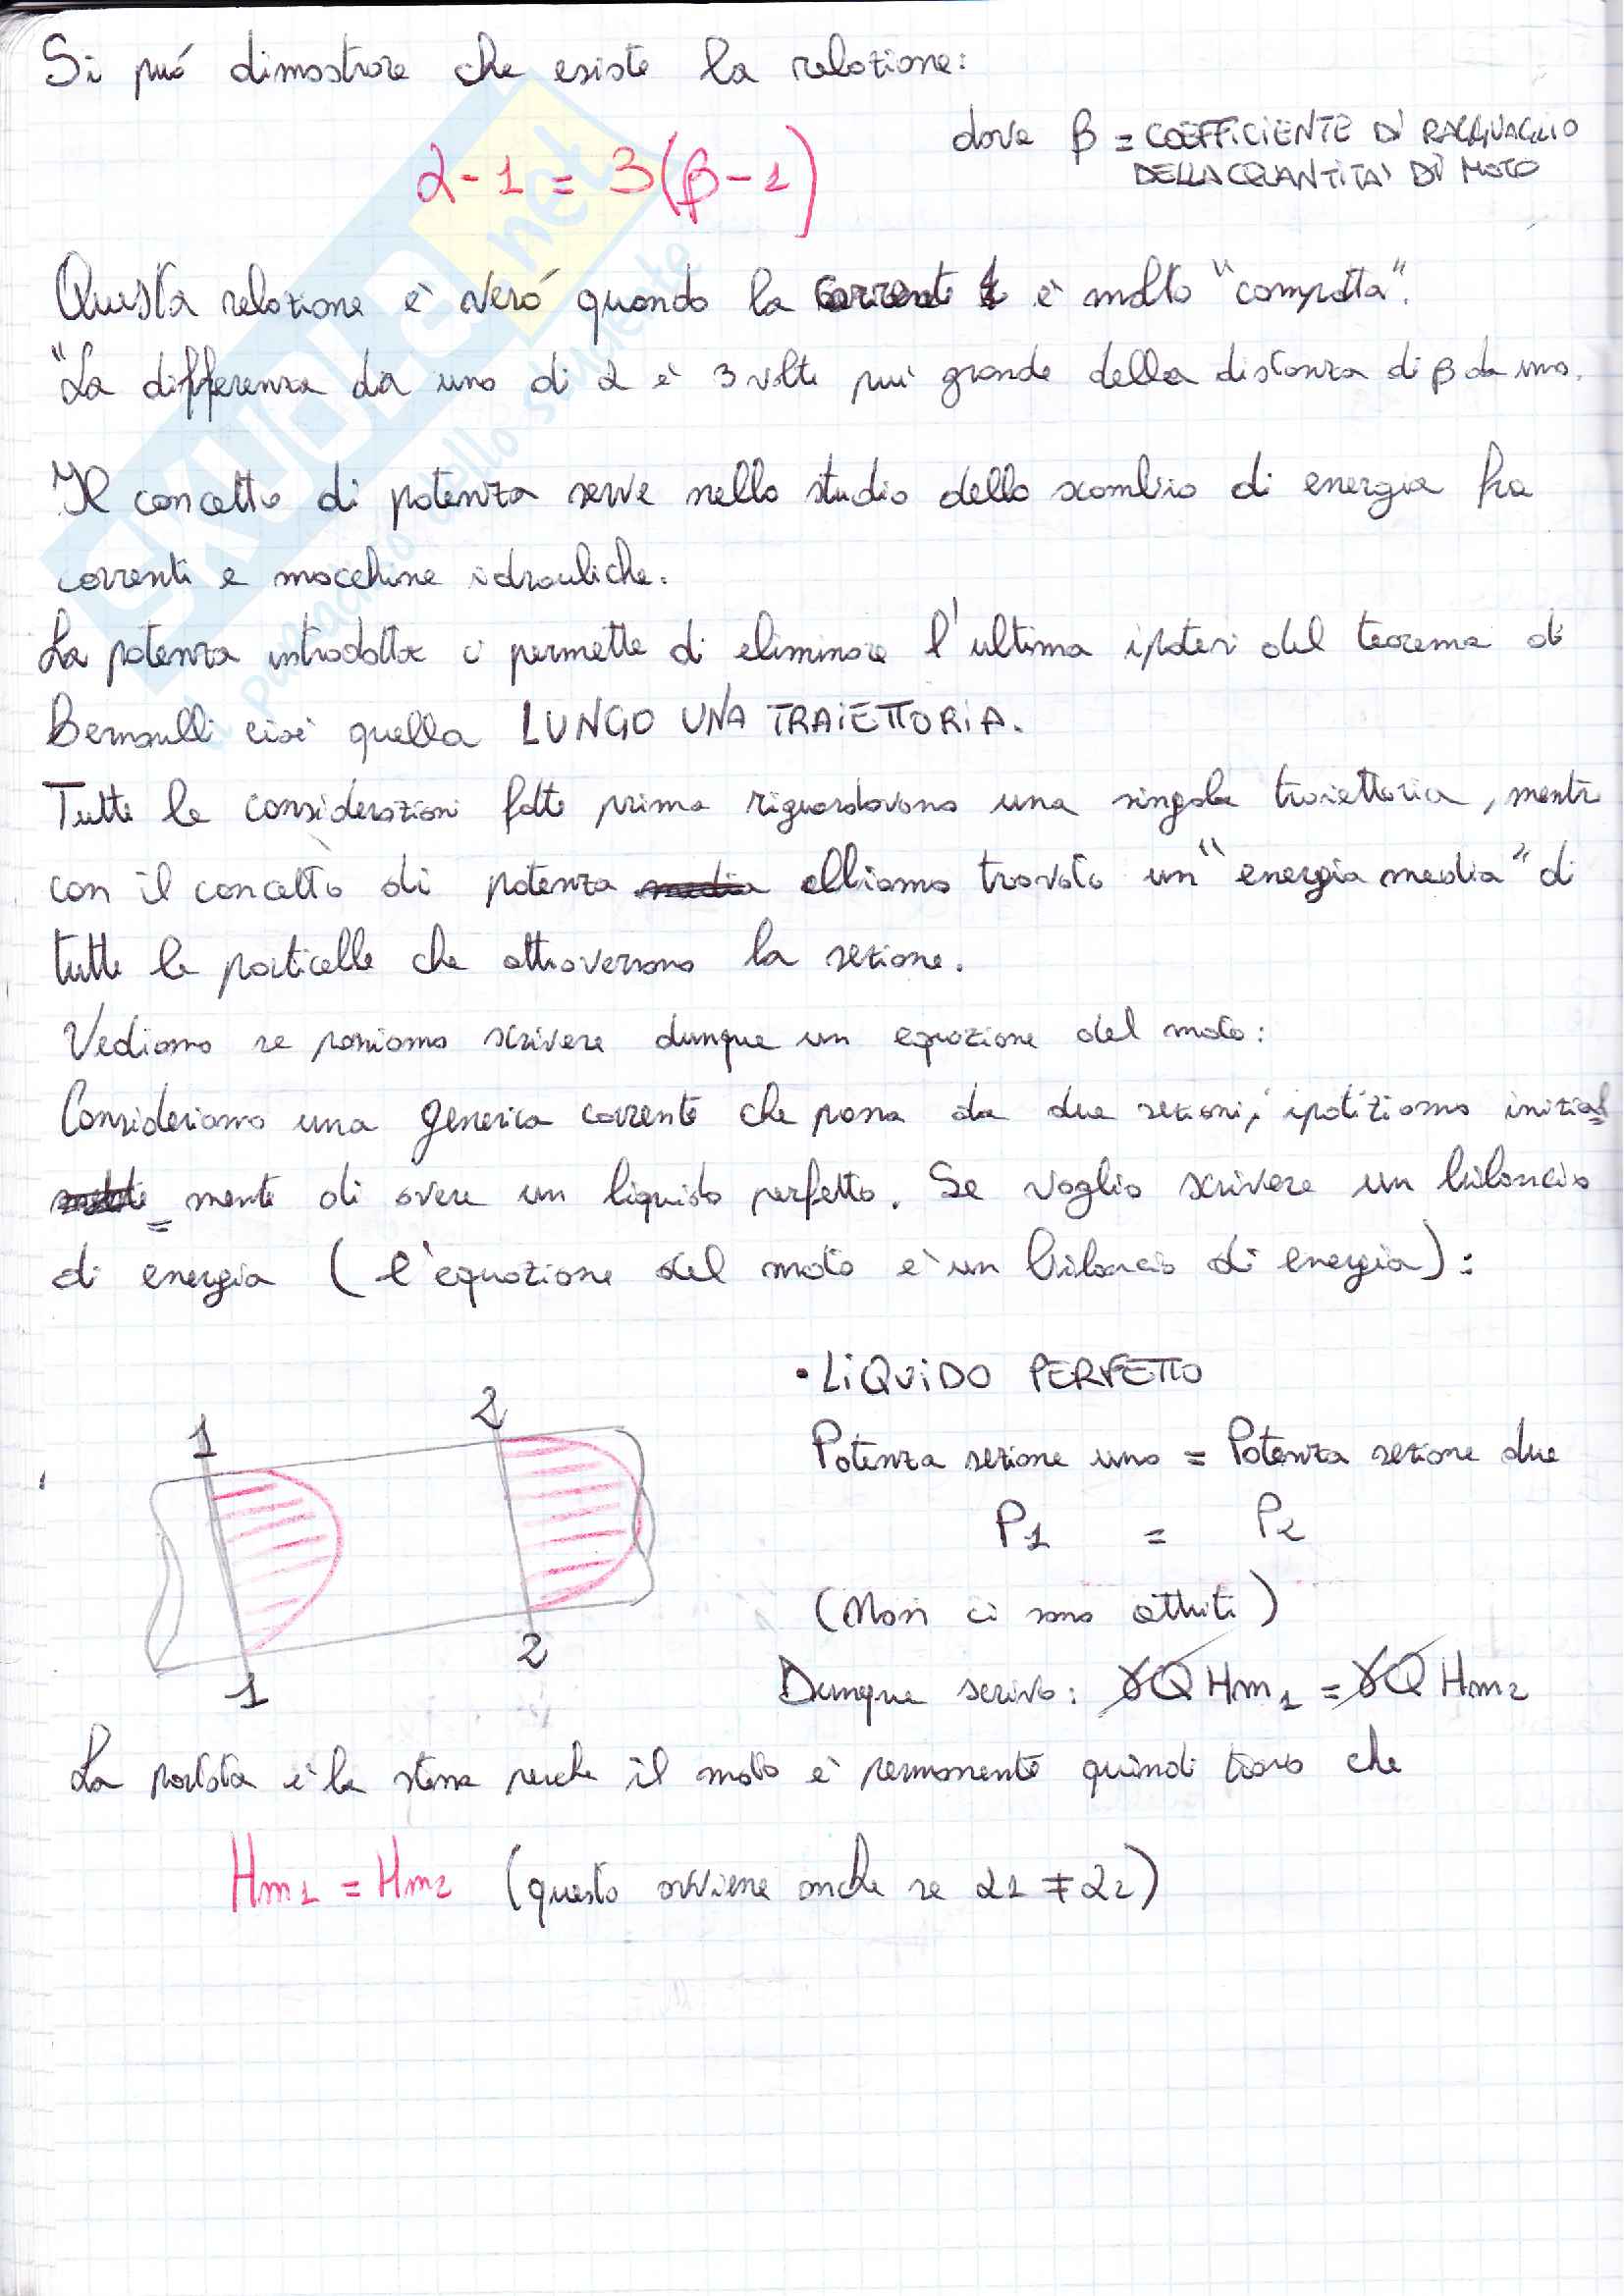 Si può dimostrare che esiste la relazione:
α - 1 = 3(β - 1)
dove β = COEFFICIENTE DI RAGGUAGLIO
DELLA QUANTITÀ DI MOTO
Questa relazione è veró quando la corrente è molto "compatta".
"La differenza da uno di α è 3 volte più grande della distanza di β da uno.
Il concetto di potenza serve nello studio dello scambio di energia fra
correnti e macchine idrauliche.
La potenza introdotta ci permette di eliminare l'ultima ipotesi del teorema di
Bernoulli cioè quella LUNGO UNA TRAIETTORIA.
Tutte le considerazioni fatte prima riguardavano una singola traiettoria, mentre
con il concetto di potenza media abbiamo trovato un "energia media" di
tutte le particelle che attraversano la sezione.
Vediamo se possiamo scrivere dunque un equazione del moto:
Consideriamo una generica corrente che passa da due sezioni, ipotizziamo inizial=
=mente di avere un liquido perfetto. Se voglio scrivere un bilancio
di energia (l'equazione del moto è un bilancio di energia):
1
2
1
2
• LIQUIDO PERFETTO
Potenza sezione uno = Potenza sezione due
P1 = P2
(Non ci sono attriti)
Dunque scrivo: γQ Hm1 = γQ Hm2
La portata è la stessa perche il moto è permanente quindi trovo che
Hm1 = Hm2 (questo avviene anche se α1 ≠ α2)
SKUOLA.net
il punto dello studente